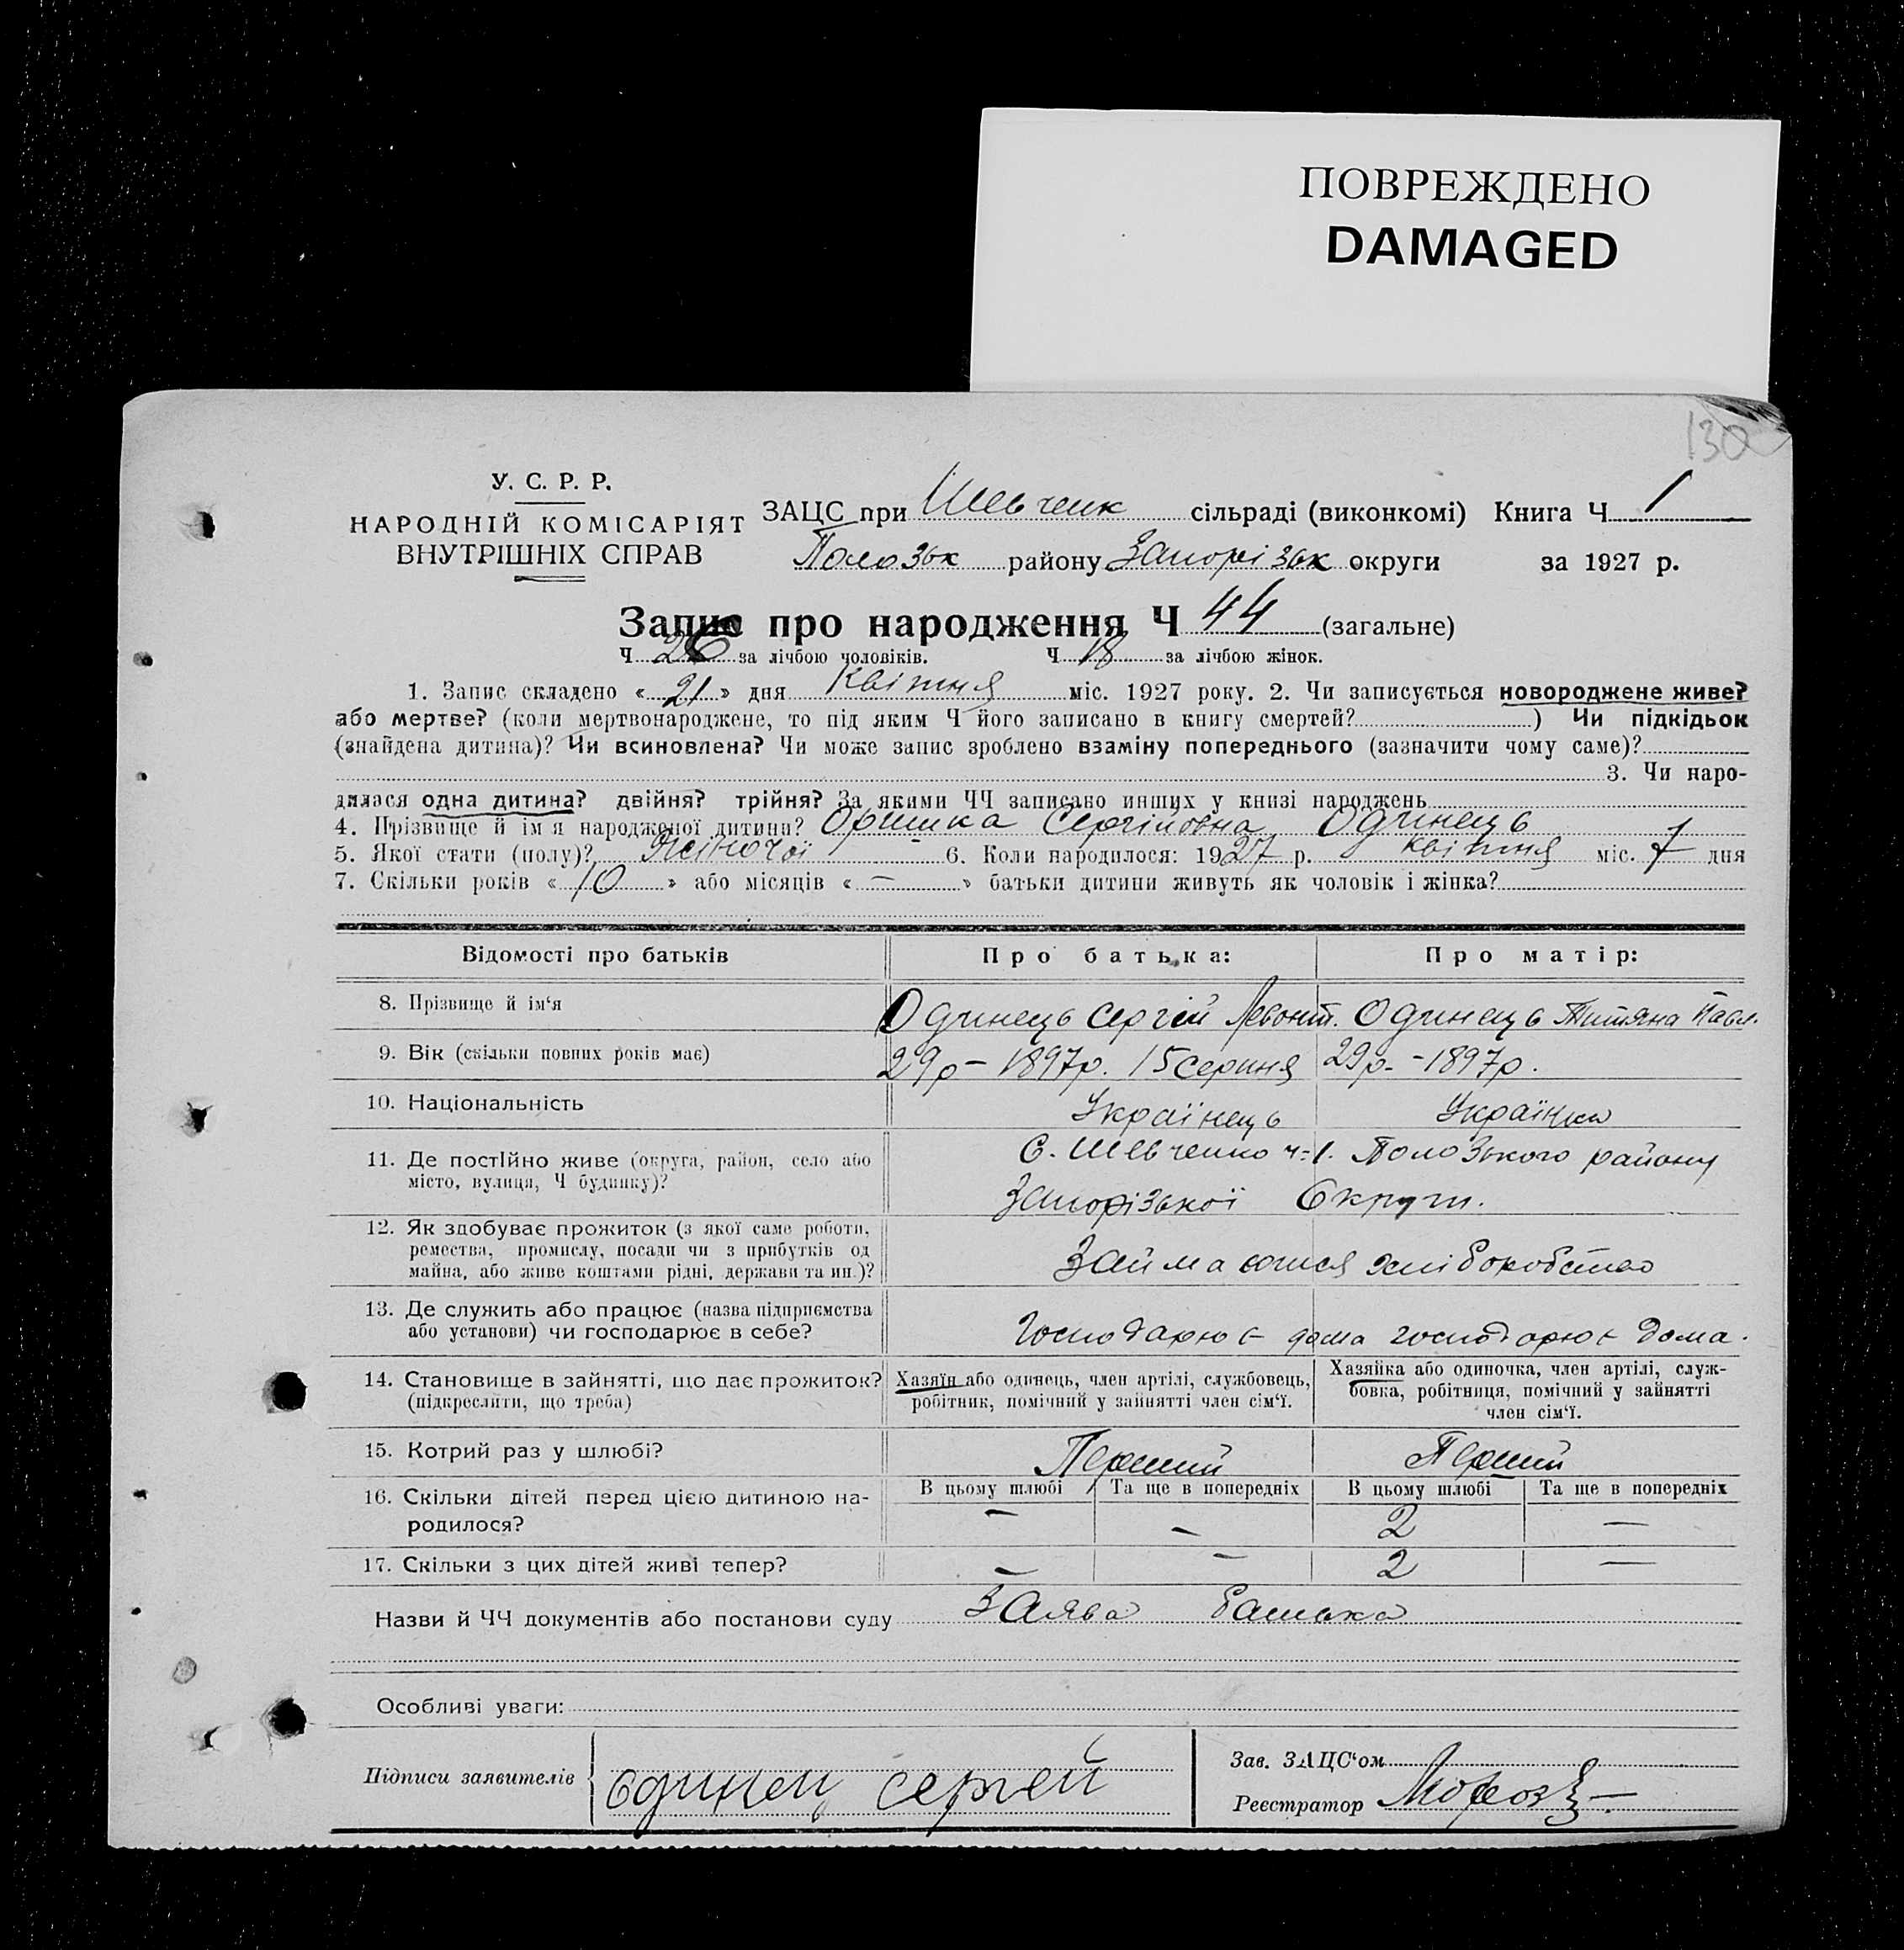 ПОВРЕЖДЕНО
DAMAGED
130
У. С. Р. Р.
НАРОДНІЙ КОМІСАРІЯТ
ВНУТРІШНІХ СПРАВ
ЗАЦС при Шевченк сільраді (виконкомі) Книга Ч 1
Полозьк району Запорізьк округи за 1927 р.
Запис про народження Ч 44 (загальне)
Ч 26 за лічбою чоловіків. Ч 18 за лічбою жінок.
1. Запис складено « 21 » дня Квітня міс. 1927 року. 2. Чи записується новороджене живе?
або мертве? (коли мертвонароджене, то під яким Ч його записано в книгу смертей? ) Чи підкідьок
(знайдена дитина)? Чи всиновлена? Чи може запис зроблено взаміну попереднього (зазначити чому саме)?
3. Чи наро-
дилася одна дитина? двійня? трійня? За якими ЧЧ записано инших у книзі народжень
4. Прізвище й ім я народженої дитини? Оришка Сергіївна Одинець
5. Якої стати (полу)? Жіночої 6. Коли народилося: 1927 р. квітня міс. 7 дня
7. Скільки років « 10 » або місяців « — » батьки дитини живуть як чоловік і жінка?
Відомості про батьків Про батька: Про матір:
8. Прізвище й ім‘я Одинець Сергій Левонт. Одинець Титяна Павл.
9. Вік (скільки повних років має) 29р – 1897р. 15 серпня 29р. – 1897р.
10. Національність Українець Українка
11. Де постійно живе (округа, район, село або С. Шевченко ч=1. Полозького району
місто, вулиця, Ч будинку)? Запорізької Округи.
12. Як здобуває прожиток (з якої саме роботи,
ремества, промислу, посади чи з прибутків од
майна, або живе коштами рідні, держави та ин.)? Займаються хліборобство
13. Де служить або працює (назва підприємства
або установи) чи господарює в себе? Господарює дома господорює дома.
14. Становище в зайнятті, що дає прожиток? Хазяїн або одинець, член артілі, службовець, Хазяйка або одиночка, член артілі, служ-
(підкреслити, що треба) робітник, помічний у зайнятті член сім‘ї. бовка, робітниця, помічний у зайнятті
член сім‘ї.
15. Котрий раз у шлюбі? Перший Перший
16. Скільки дітей перед цією дитиною на- В цьому шлюбі Та ще в попередніх В цьому шлюбі Та ще в попередніх
родилося? — — 2 —
17. Скільки з цих дітей живі тепер? — — 2 —
Назви й ЧЧ документів або постанови суду Заява батька
Особливі уваги:
Підписи заявителів одинец сергей
Зав. ЗАЦС‘ом
Реєстратор Мороз